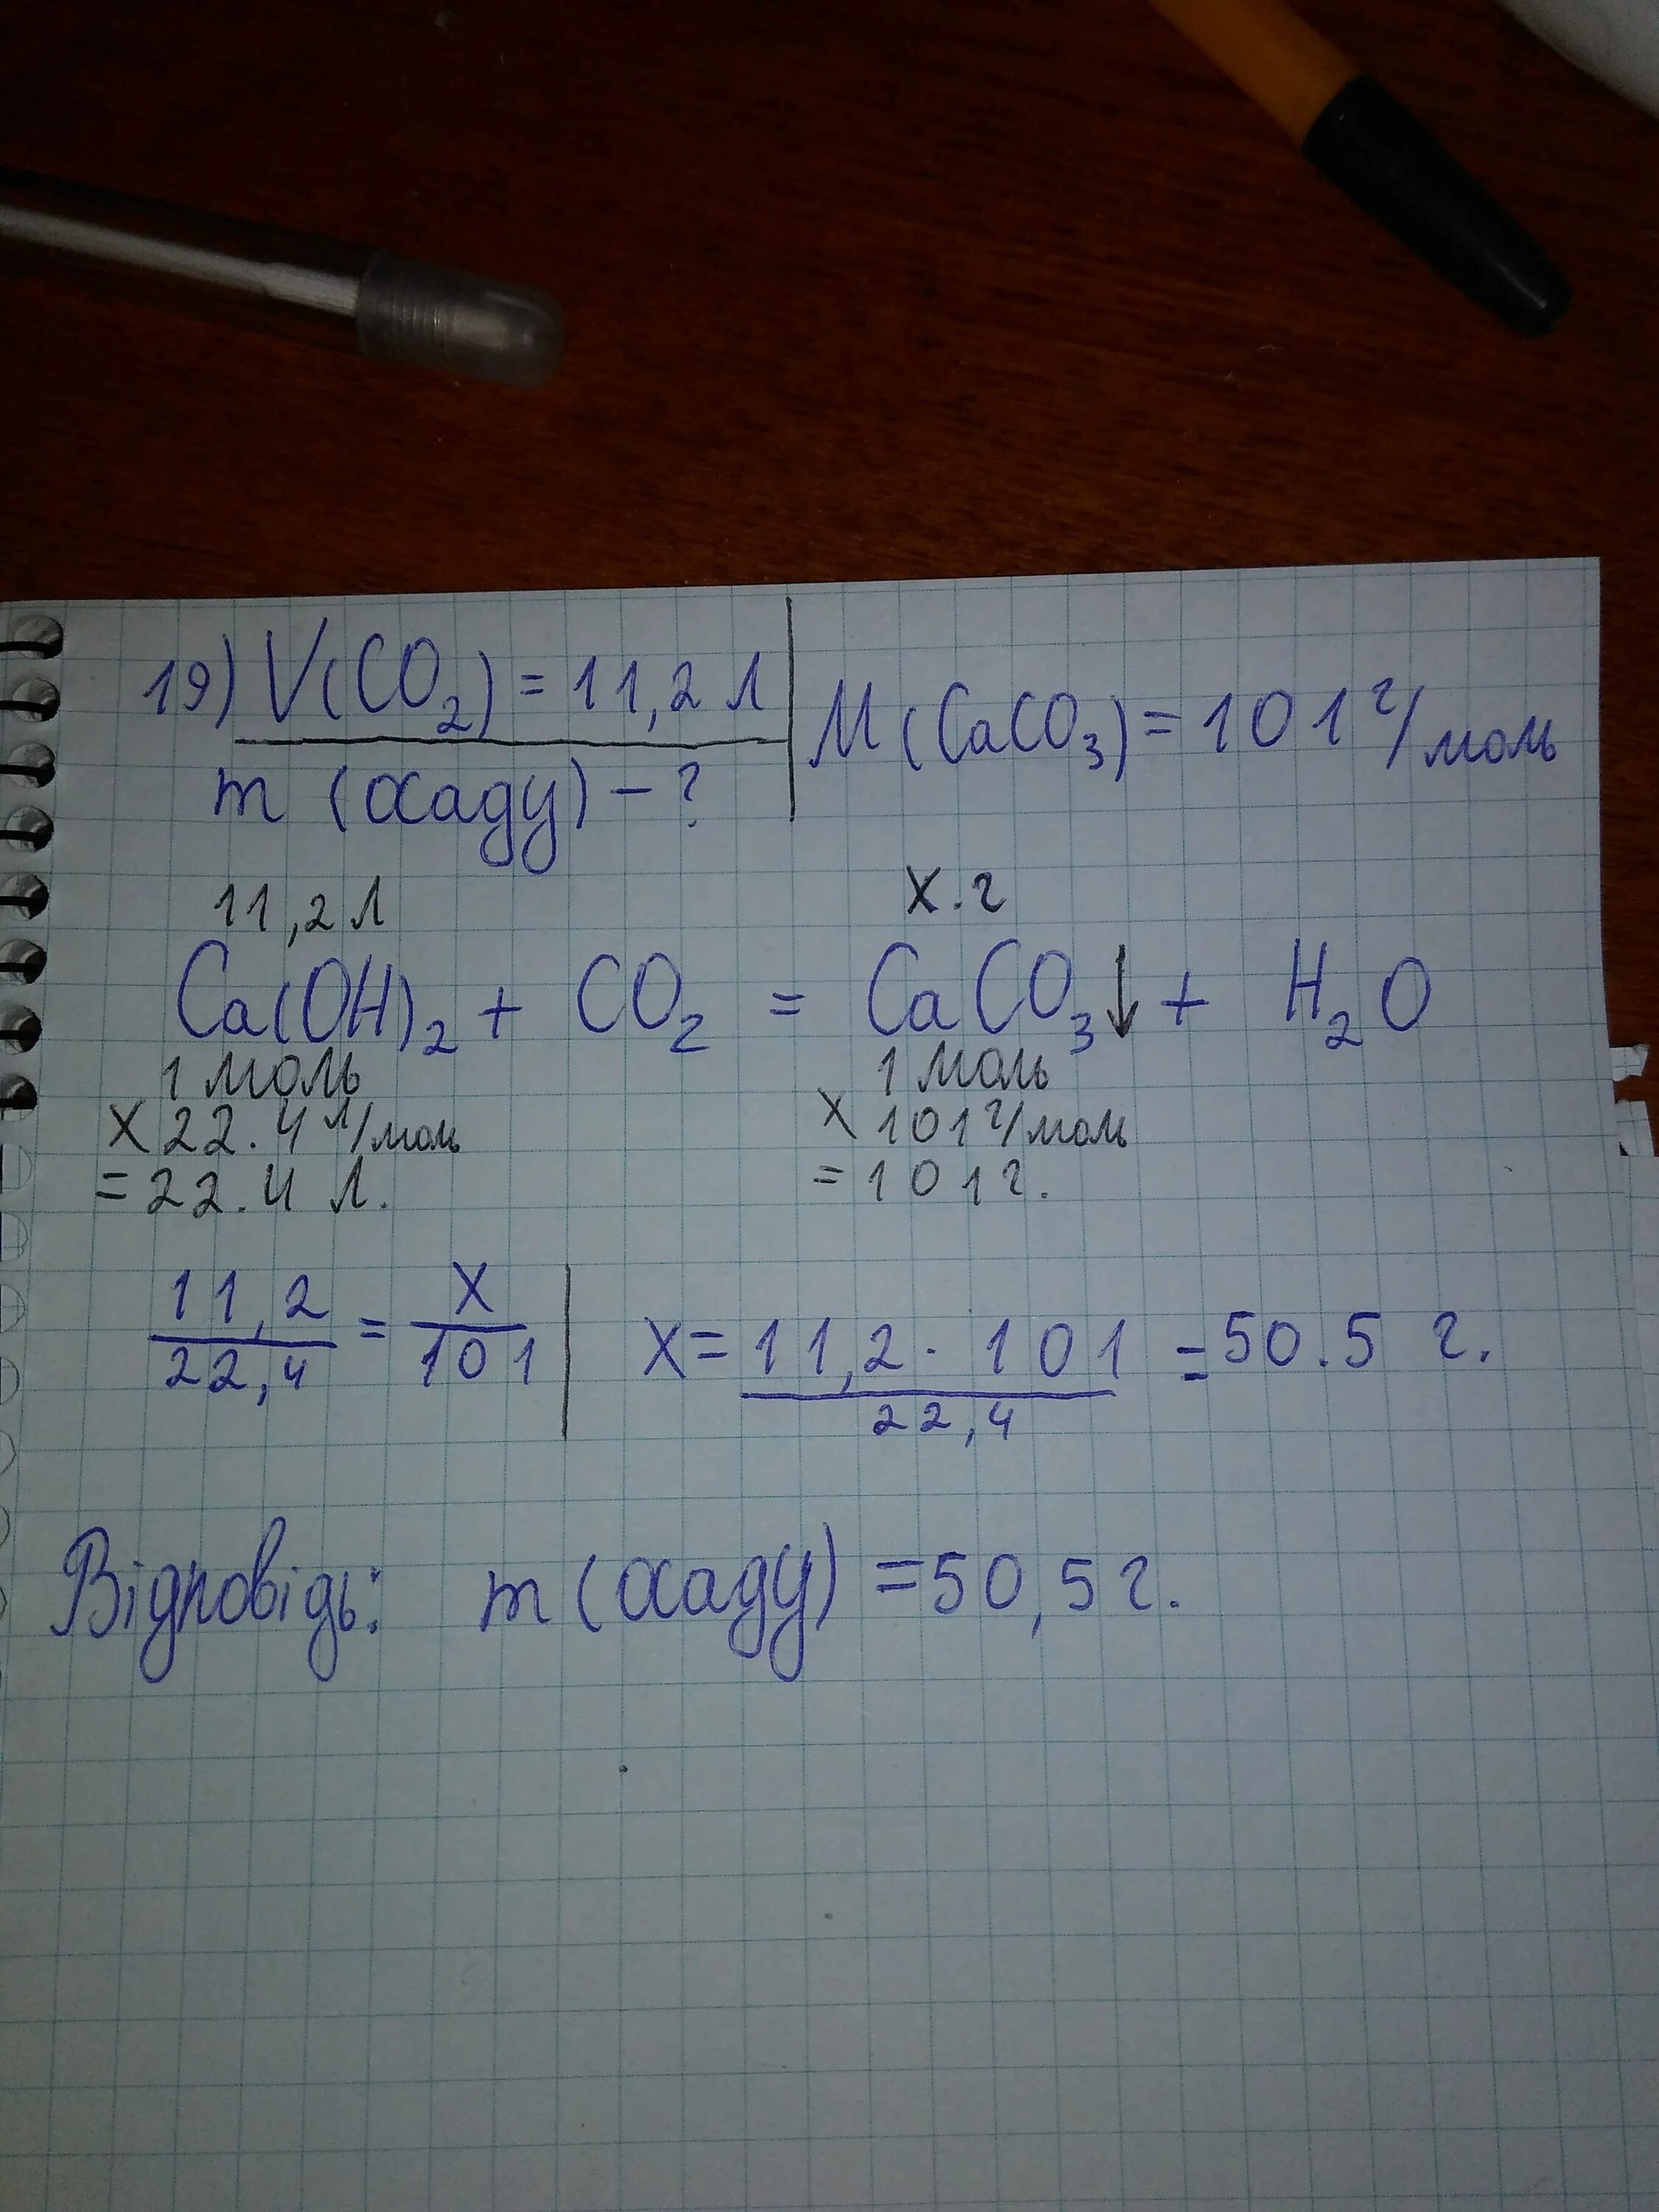 19) V(CO₂) = 11,2 л
m (осаду) – ?
M (CaCO₃) = 101 г/моль
11,2 л
x. г
Ca(OH)₂ + CO₂ = CaCO₃↓ + H₂O
1 моль 1 моль
x 22.4 л/моль x 101 г/моль
= 22.4 л. = 101 г.
11,2/22,4 = x/101 | x = 11,2 · 101/22,4 = 50.5 г.
Відповідь: m (осаду) = 50,5 г.